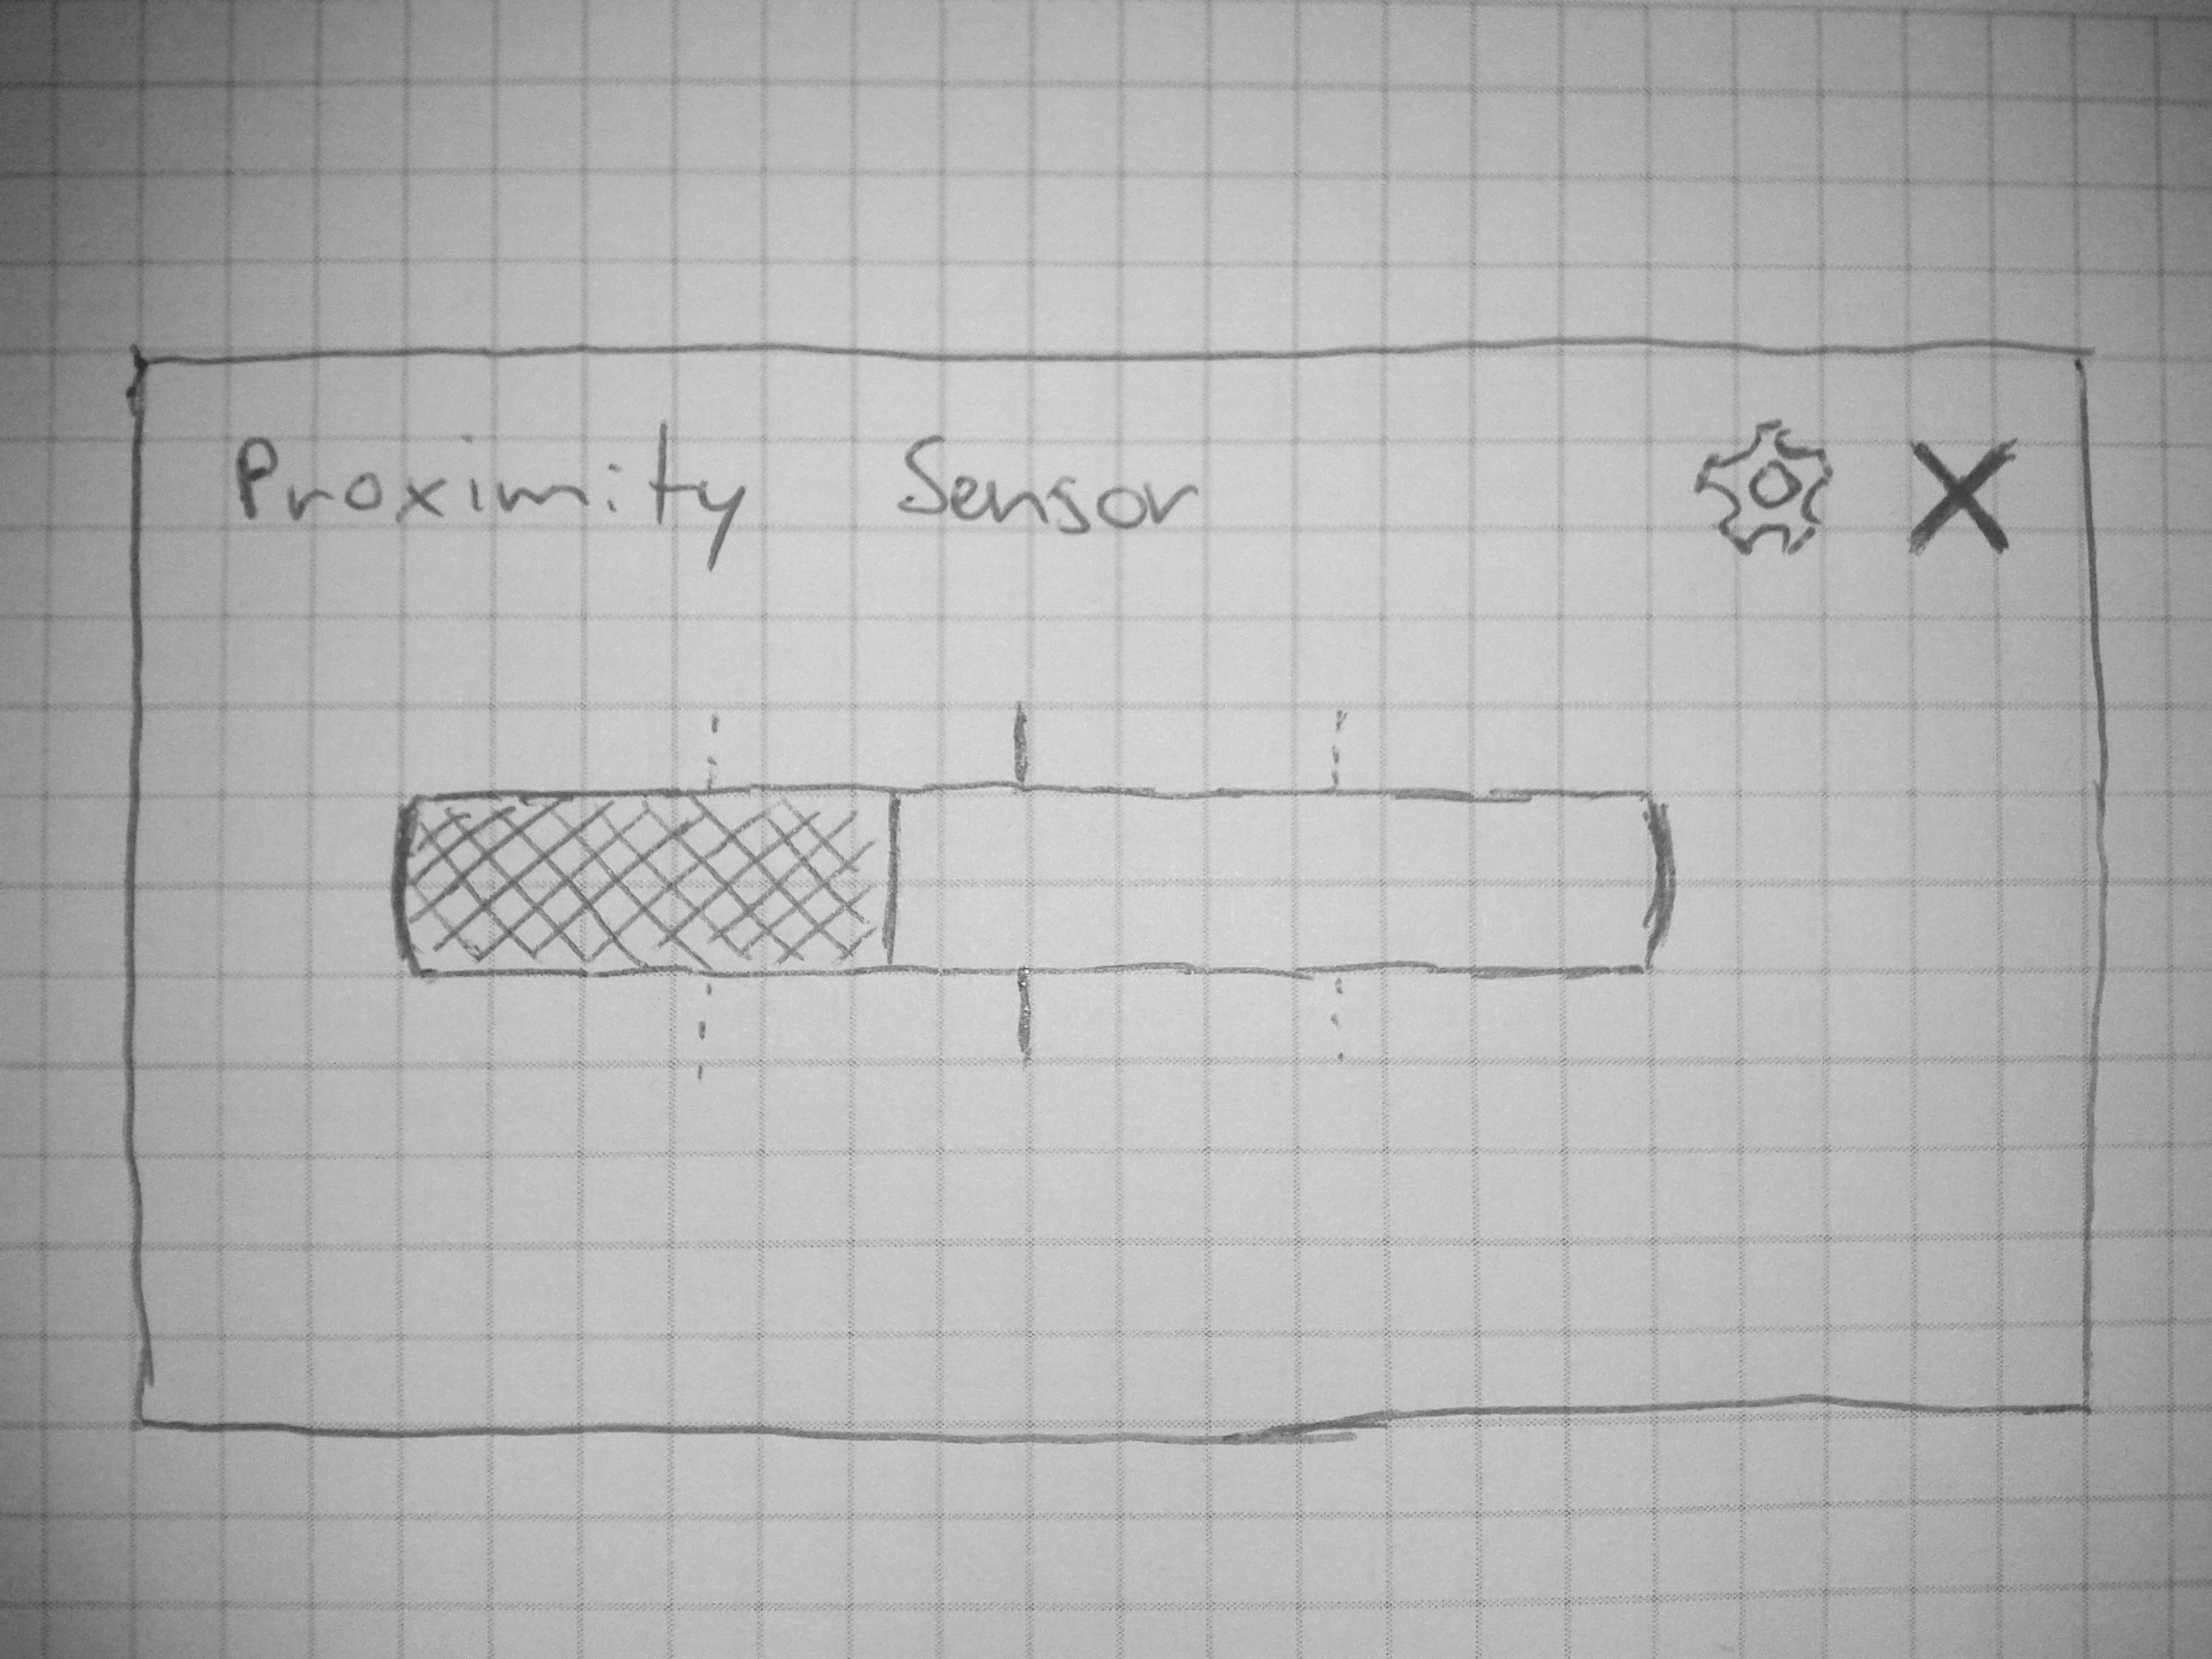 Proximity Sensor